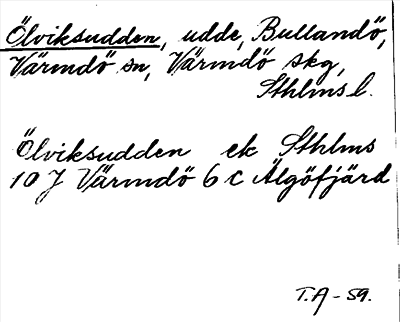 Ölviksudden, udde, Bullandö,
Värmdö sn, Värmdö skg,
Sthlms l.
Ölviksudden ek Sthlms
10 J Värmdö 6 c Älgöfjärd
T.A-59.